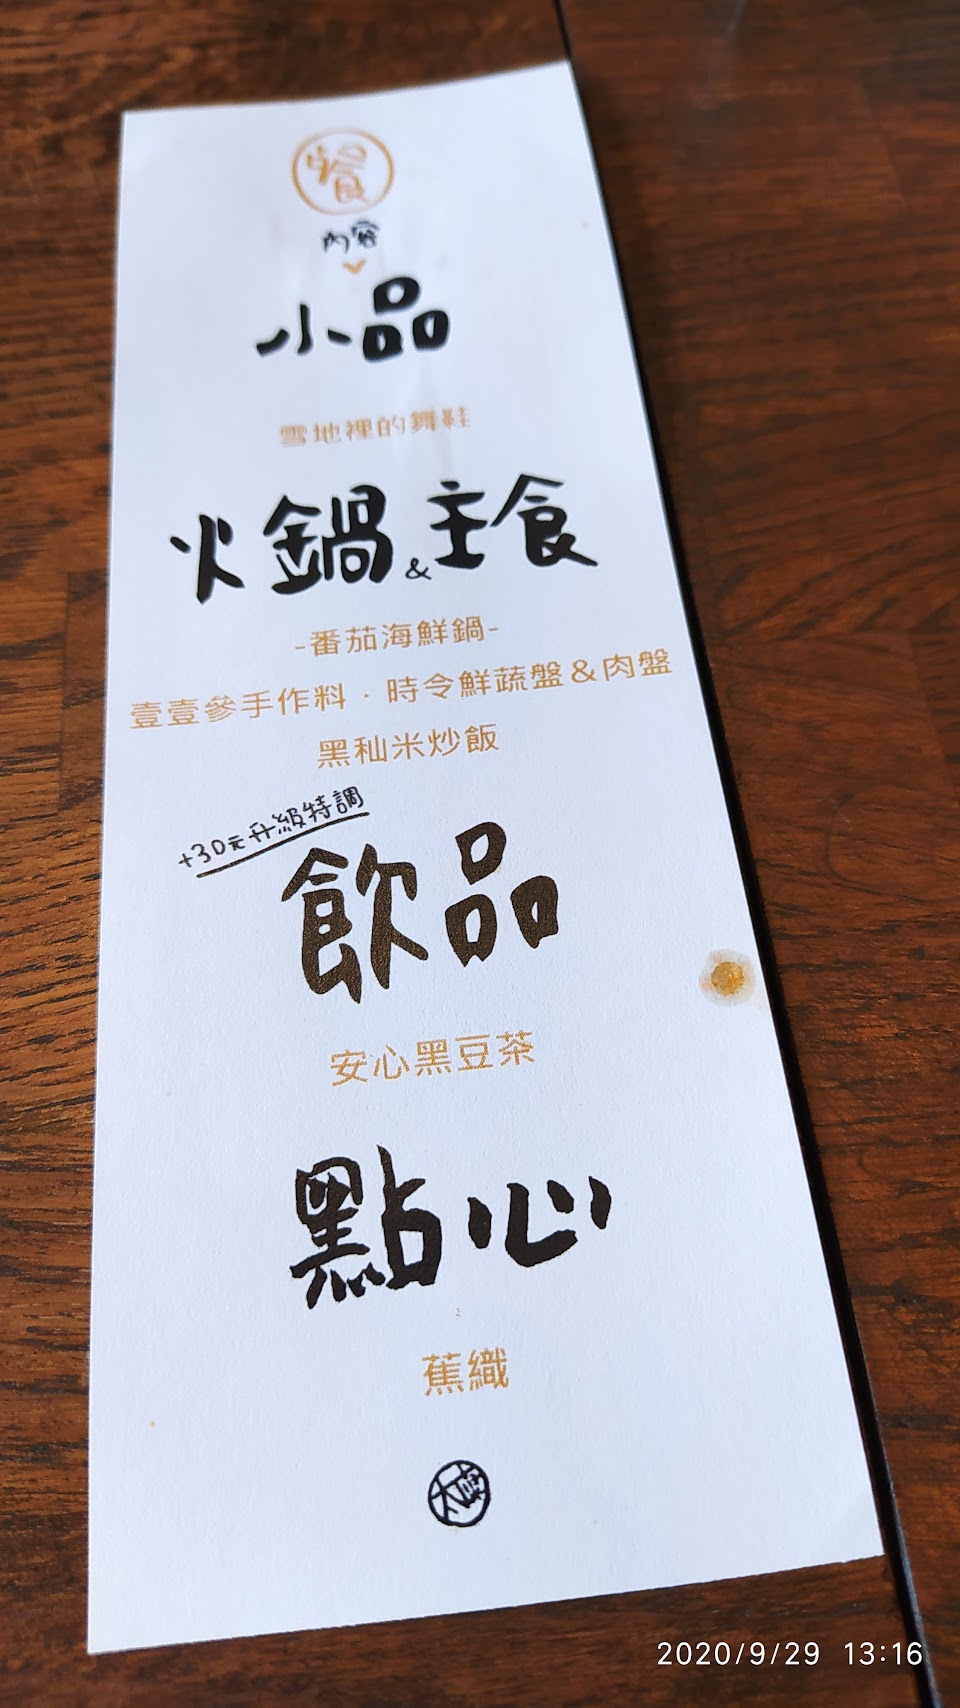 餐
內容
小品
雪地裡的舞鞋
火鍋&主食
-番茄海鮮鍋-
壹壹參手作料・時令鮮蔬盤&肉盤
黑秈米炒飯
+30元升級特調
飲品
安心黑豆茶
點心
蕉織
2020/9/29 13:16